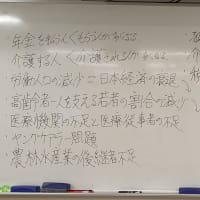 ・年金を払う人くもらう人がなる
介護する人く介護される人がなる
・労働人口の減少=日本経済の衰退
・高齢者一人を支える若者の割合の減少
・医療機関の不足と医療従事者の不足
・ヤングケアラー問題
・農林水産業の後継者不足